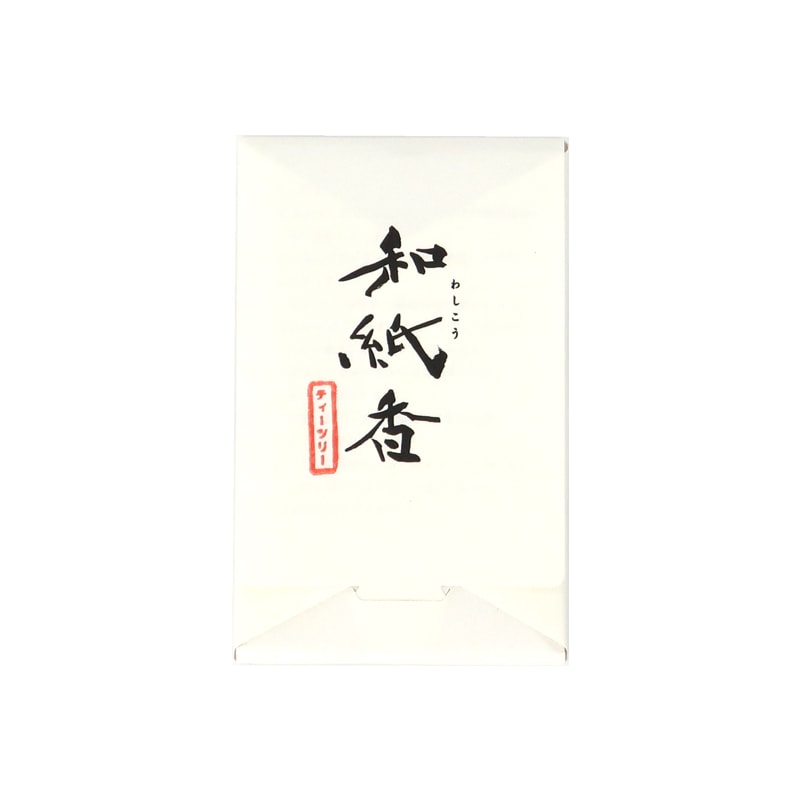 和紙香
わしこう
ティーンリー